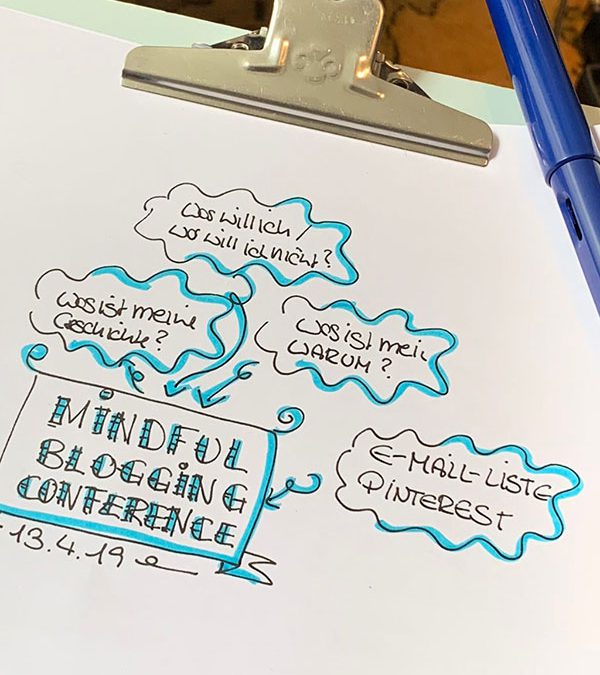 Was will ich /
was will ich nicht?
Was ist meine
Geschichte?
Was ist mein
WARUM?
MiNDFUL
BLOGGiNG
CONFERENCE
13.4.19
E-MAIL-LISTE
PINTEREST